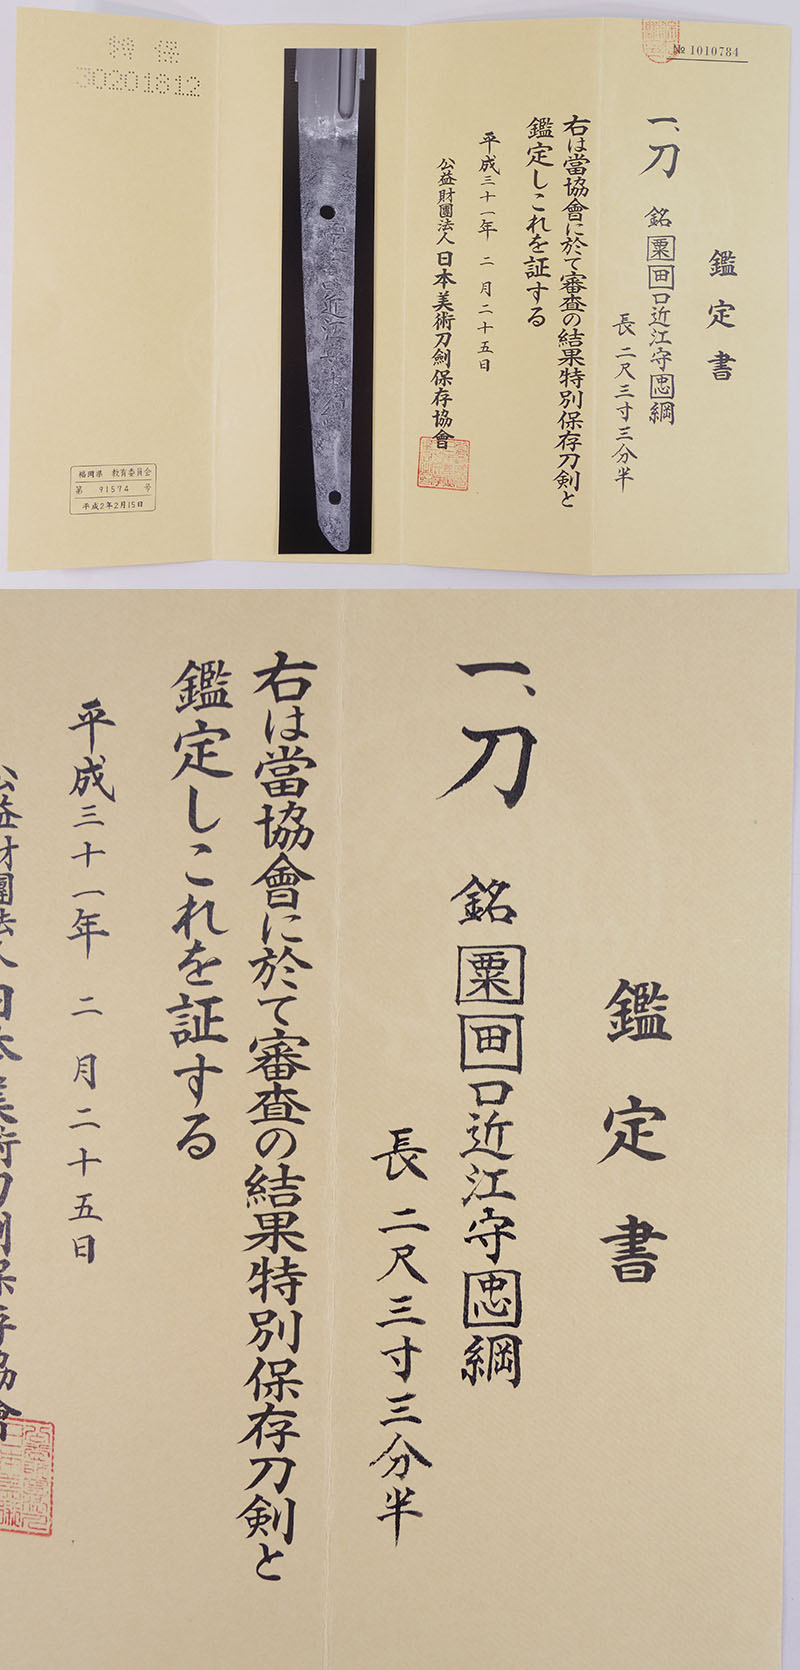 № 1010784
鑑定書
一、刀 銘 粟田口近江守忠綱
長 二尺三寸三分半
右は當協會に於て審査の結果特別保存刀剣と
鑑定しこれを証する
平成三十一年 二 月 二十五日
公益財團法人 日本美術刀剣保存協會
近江
特保
30201812
福岡県 教育委員会
第 91574 号
平成2年2月15日
鑑定書
一、刀 銘 粟田口近江守忠綱
長 二尺三寸三分半
右は當協會に於て審査の結果特別保存刀剣と
鑑定しこれを証する
平成三十一年 二 月 二十五日
公益財團法人 日本美術刀剣保存協會